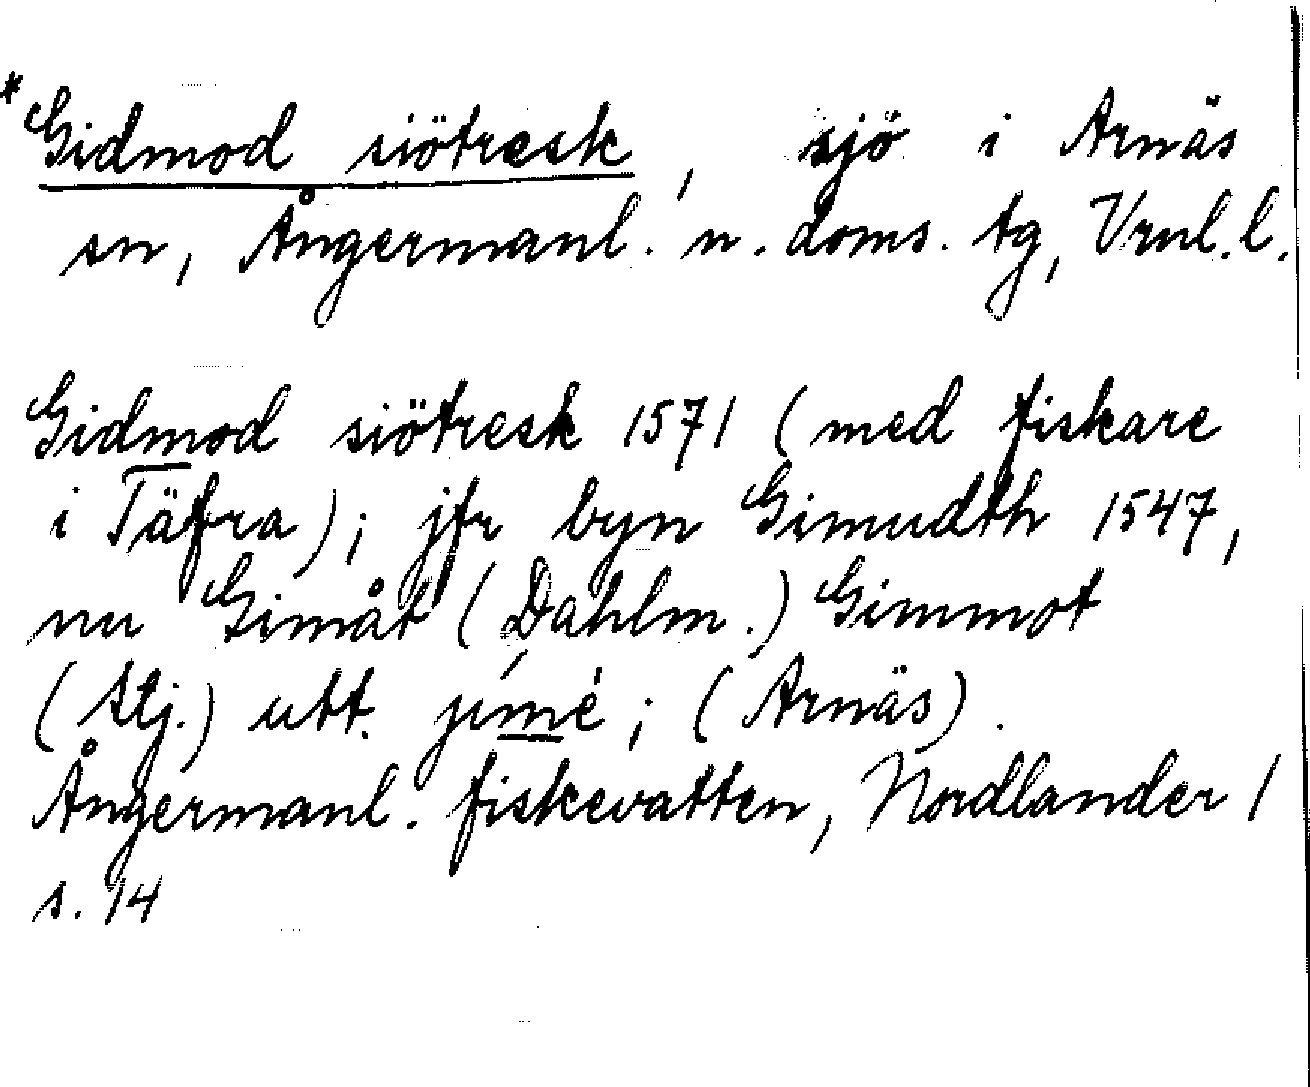 *Gidmod siötresk, sjö i Arnäs
sn, Ångermanl. n. doms. tg, Vrnl. l.
Gidmod siötresk 1571 (med fiskare
i Täfra); jfr byn Gimudth 1547,
nu Gimåt (Dahlm.) Gimmot
(Stj.) utt. jímè; (Arnäs).
Ångermanl. fiskevatten, Nordlander 1
s. 14